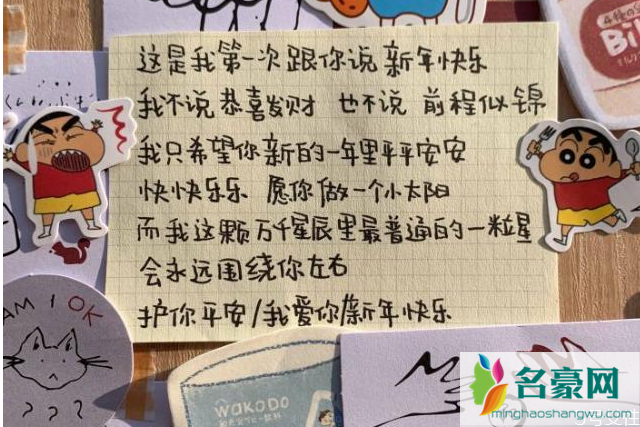 这是我第一次跟你说 新年快乐
我不说恭喜发财 也不说 前程似锦
我只希望你新的一年里平平安安
快快乐乐 愿你做一个小太阳
而我这颗万千星辰里最普通的一粒星
会永远围绕你左右
护你平安/我爱你/新年快乐
AM I OK
???
WaKODO
名豪网
minghaoshangwu.com